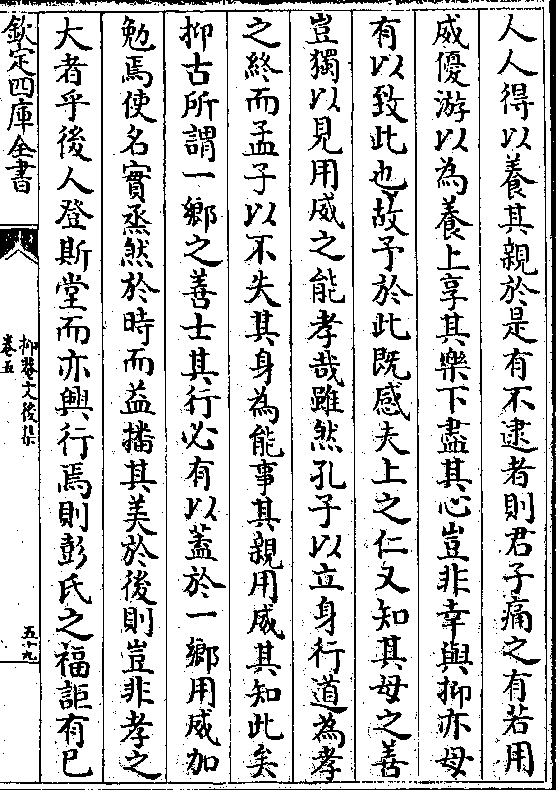 人人得以養其親於是有不逮者則君子痛之有若用
威優游以為養上享其樂下盡其心豈非幸與抑亦母
有以致此也故予於此既感夫上之仁又知其母之善
豈獨以見用威之能孝哉雖然孔子以立身行道為孝
之終而孟子以不失其身為能事其親用威其知此矣
抑古所謂一鄉之善士其行必有以蓋於一鄉用威加
勉焉使名實烝然於時而益播其美於後則豈非孝之
大者乎後人登斯堂而亦興行焉則彭氏之福詎有已
欽定四庫全書
抑菴文後集
卷五
五十九